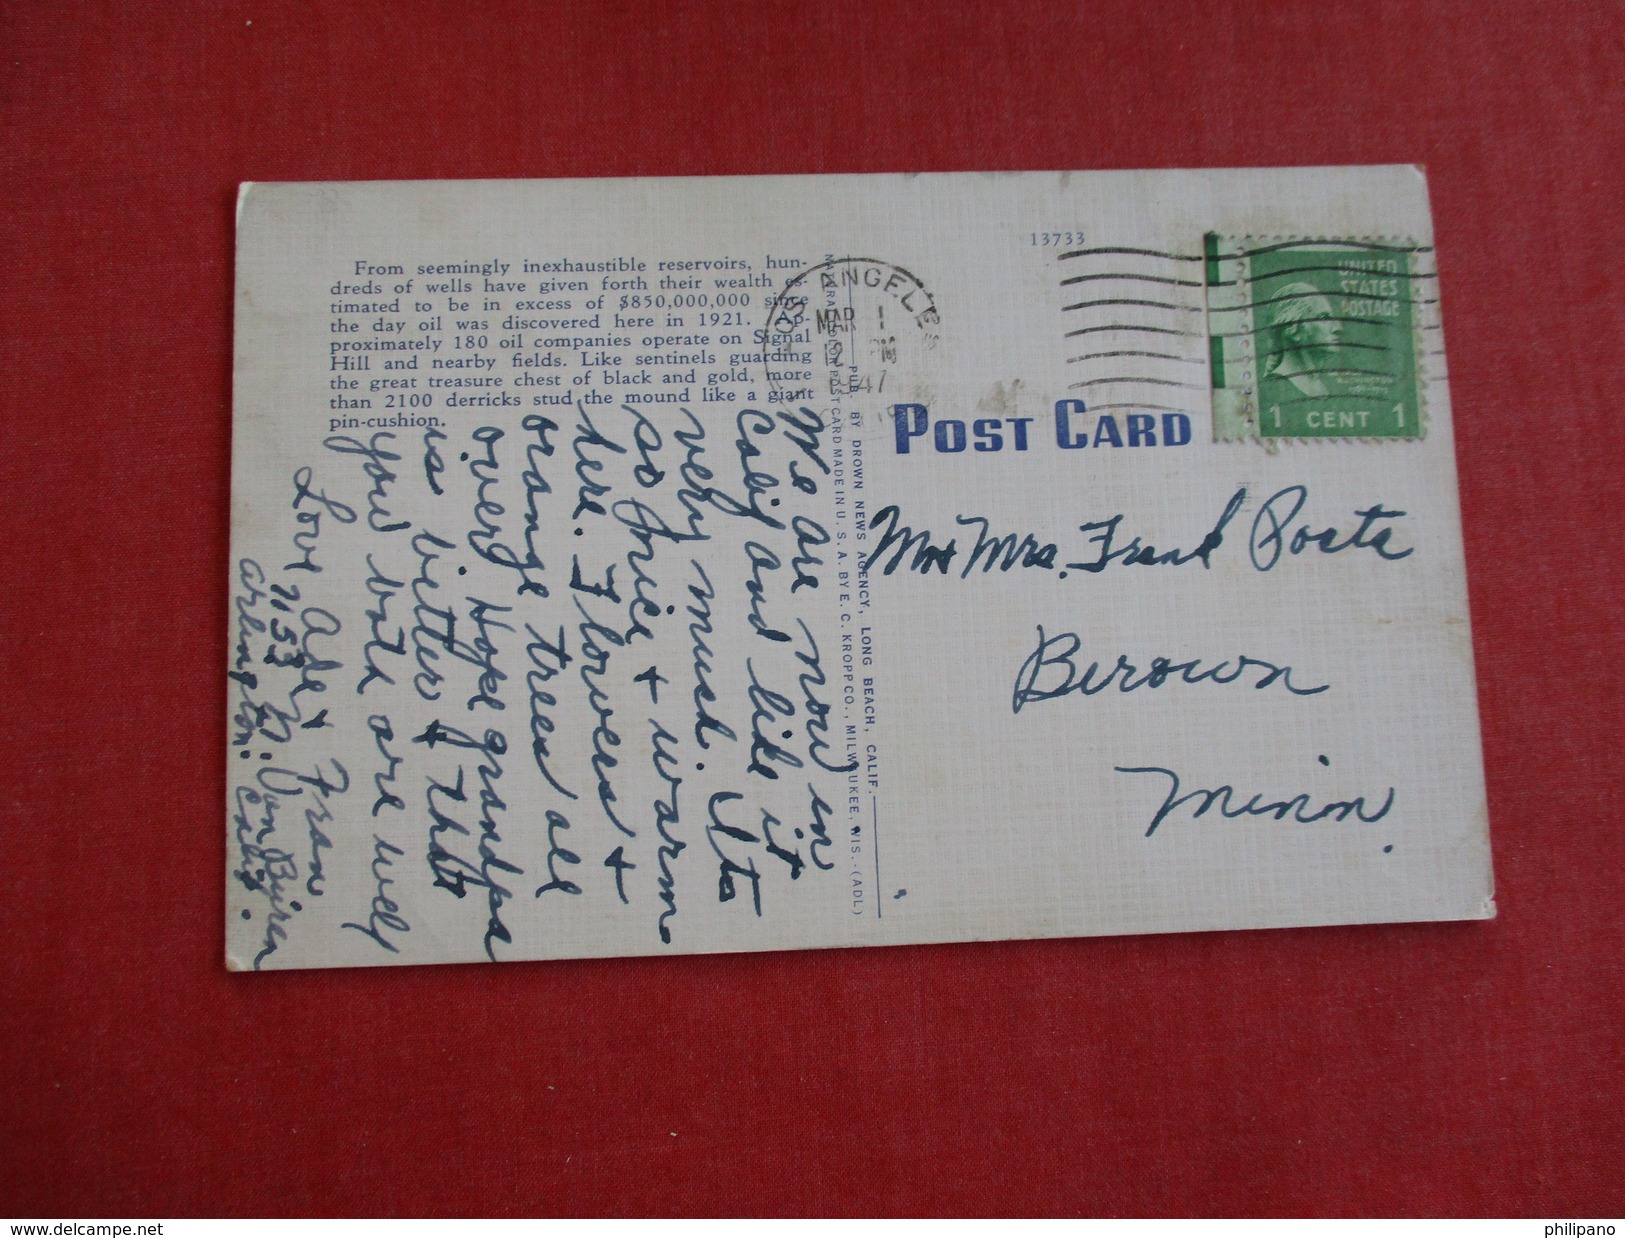 13733
From seemingly inexhaustible reservoirs, hun-
dreds of wells have given forth their wealth es-
timated to be in excess of $850,000,000 since
the day oil was discovered here in 1921. Ap-
proximately 180 oil companies operate on Signal
Hill and nearby fields. Like sentinels guarding
the great treasure chest of black and gold, more
than 2100 derricks stud the mound like a giant
pin-cushion.
We are now in
Calif and like it
very much. Its
so nice + warm
here. Flowers +
orange trees all
over. Hope grandpa
is better + that
you both are well
Love Ade + Fran
1153 W. Van Buren
Arlington. Calif.
PUB. BY DROWN NEWS AGENCY, LONG BEACH, CALIF.
POST CARD MADE IN U. S. A. BY E. C. KROPP CO., MILWAUKEE, WIS.-(ADL)
LOS ANGELES
MAR 1
1947
POST CARD
UNITED
STATES
POSTAGE
1 CENT 1
Mr + Mrs. Frank
Berown
Minn.
delcampe.net
philipano